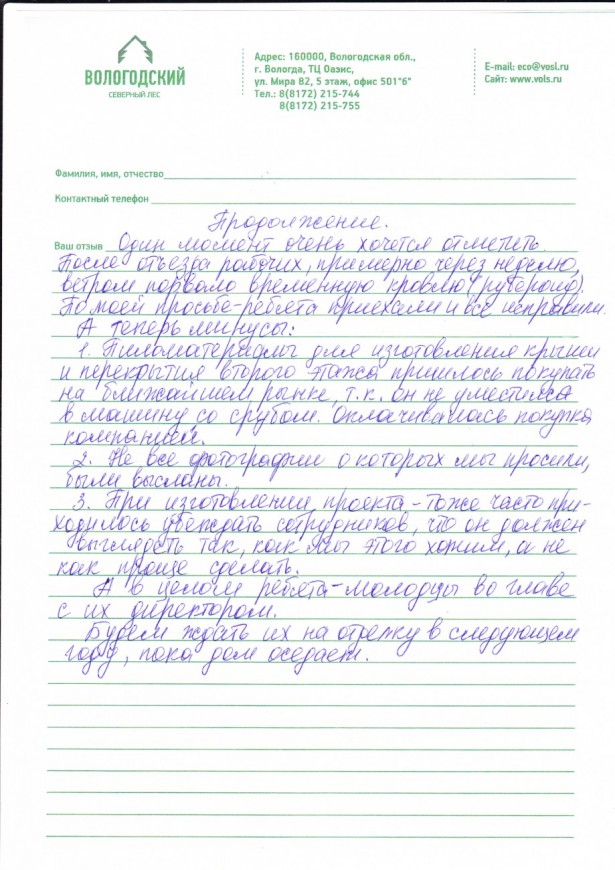 ВОЛОГОДСКИЙ
СЕВЕРНЫЙ ЛЕС
Адрес: 160000, Вологодская обл.,
г. Вологда, ТЦ Оазис,
ул. Мира 82, 5 этаж, офис 501"б"
Тел.: 8(8172) 215-744
8(8172) 215-755
E-mail: eco@vosl.ru
Сайт: www.vols.ru
Фамилия, имя, отчество
Контактный телефон
Продолжение.
Ваш отзыв Один момент очень хочется отметить.
После отъезда рабочих, примерно через неделю,
ветром порвало временную кровлю (рубероид).
По моей просьбе - ребята приехали и все исправили.
А теперь минусы:
1. Пиломатериалы для изготовления крыши
и перекрытия второго этажа пришлось покупать
на ближайшем рынке, т.к. он не уместился
в машину со срубом. Оплачивалась покупка
компанией.
2. Не все фотографии о которых мы просили,
были высланы.
3. При изготовлении проекта - тоже часто при-
ходилось убеждать сотрудников, что он должен
выглядеть так, как мы этого хотим, а не
как проще сделать.
А в целом ребята - молодцы во главе
с их директором.
Будем ждать их на отделку в следующем
году, пока дом оседает.